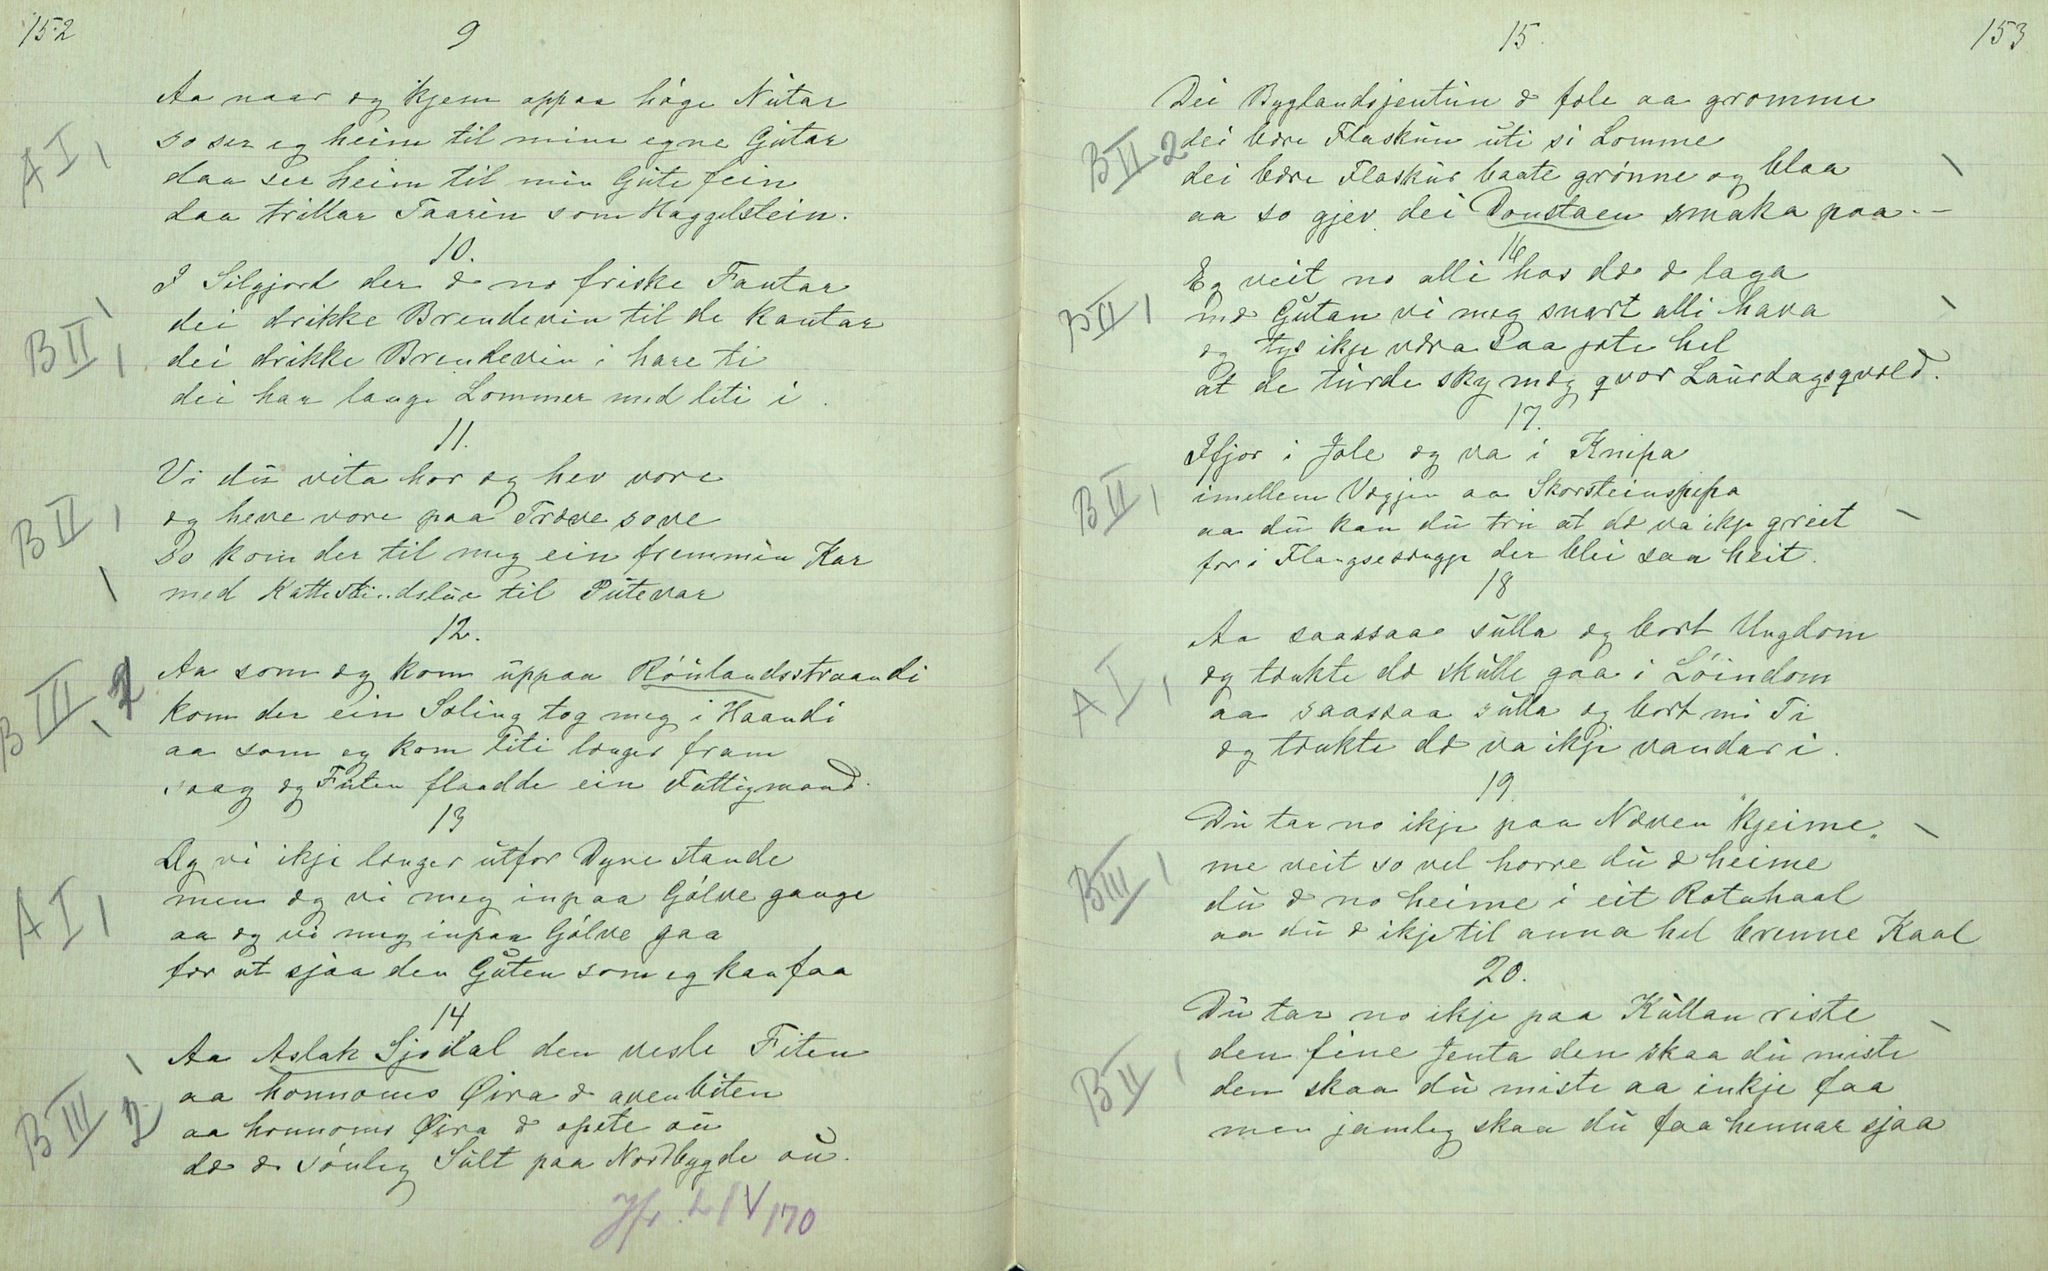 152
9
Aa naar æg kjem oppaa høge Nutar
so ser eg heim til mine egne Gutar
daa ser heim til min Gute fein
daa trillar Taarin som Haggelstein.
AI,
10.
I Siljord der æ no friske Fantar
dei drikke Brendevin til de kantar
dei drikke Brendevin i hare ti
dei har lange Lommer med liti i.
BII,
11.
Vi du vita hor æg hev vore
æg heve vore paa Træve sove
So kom der til meg ein fremmin Kar
med Katteskindslur til Putevar
BII,
12.
Aa som æg kom uppaa Røulandsstraandi
kom der ein Sæling tog meg i Haandi
aa som eg kom liti længer fram
saag æg Futen flaadde ein Fattigmand.
BIII, 2
13
Æg vi ikje længer utfor Dyne stande
men æg vi meg inpaa Gólve gange
aa æg vi meg inpaa Gólve gaa
før at sjaa den Guten som eg kan faa
AI,
14
Aa Aslak Sjodal den vesle Fiten
aa honnoms Øira æ avenbiten
aa honnoms Øira æ opete au
dæ æ sónleg Sult paa Nordbygde au.
BIII 2
Jfr. LIV 170
153
15.
Dei Byglandsjentun æ fæle aa gromme
dei bære Flaskun uti si Lomme
dei bære Flaskur baate grønne og blaa
aa so gjev dei Doustaen smaka paa. –
BII 2
16
Eg veit no alli hos dæ æ laga
me Gutan vi meg snart alli hava
eg tys ikje væra Saa jote hel
at de turde sky mæg qvor Laurdagsqvæld.
BII,
17.
Ifjor i Jole æg va i Knipa
imellem Vægjen aa Skorsteinspipa
aa du kan du tru at dæ va ikje greit
for i Flangsesvægje der blei saa heit.
BII,
18
Aa saassaa sulla æg bort Ungdom
æg tænkte dæ skulle gaa i Lóindom
aa saassaa sulla æg bort mi Ti
æg tænkte dæ va ikje vandar i.
AI,
19.
Du tar no ikje paa Næven "kjeime"
me veit so vel horre du æ heime
du æ no heime i eit Rotahaal
aa du æ ikje til anna hel brenne Kaal
BIII,
20.
Du tar no ikje paa Kullan riste
den fine Jenta den skaa du miste
den skaa du miste aa inkje faa
men jamleg skaa du faa hennar sjaa
BII,